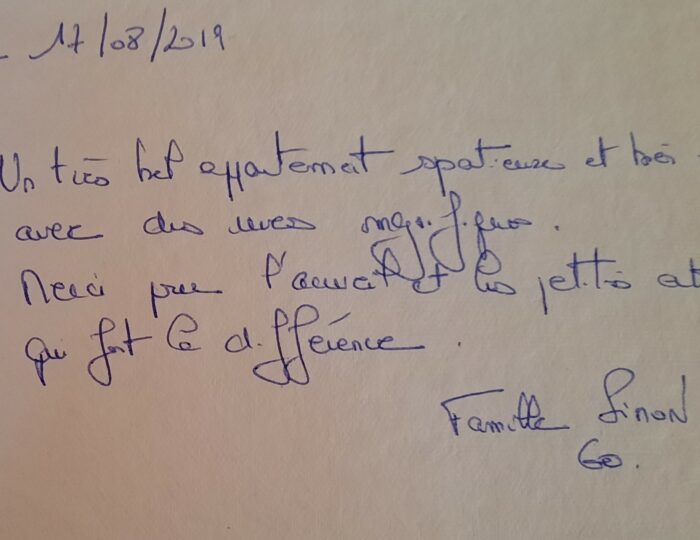 17/08/2019
Un très bel appartement spatieux et
avec des vues magnifiques.
Merci pour l'accueil et les petites
qui font la différence.
Famille Simon
60.